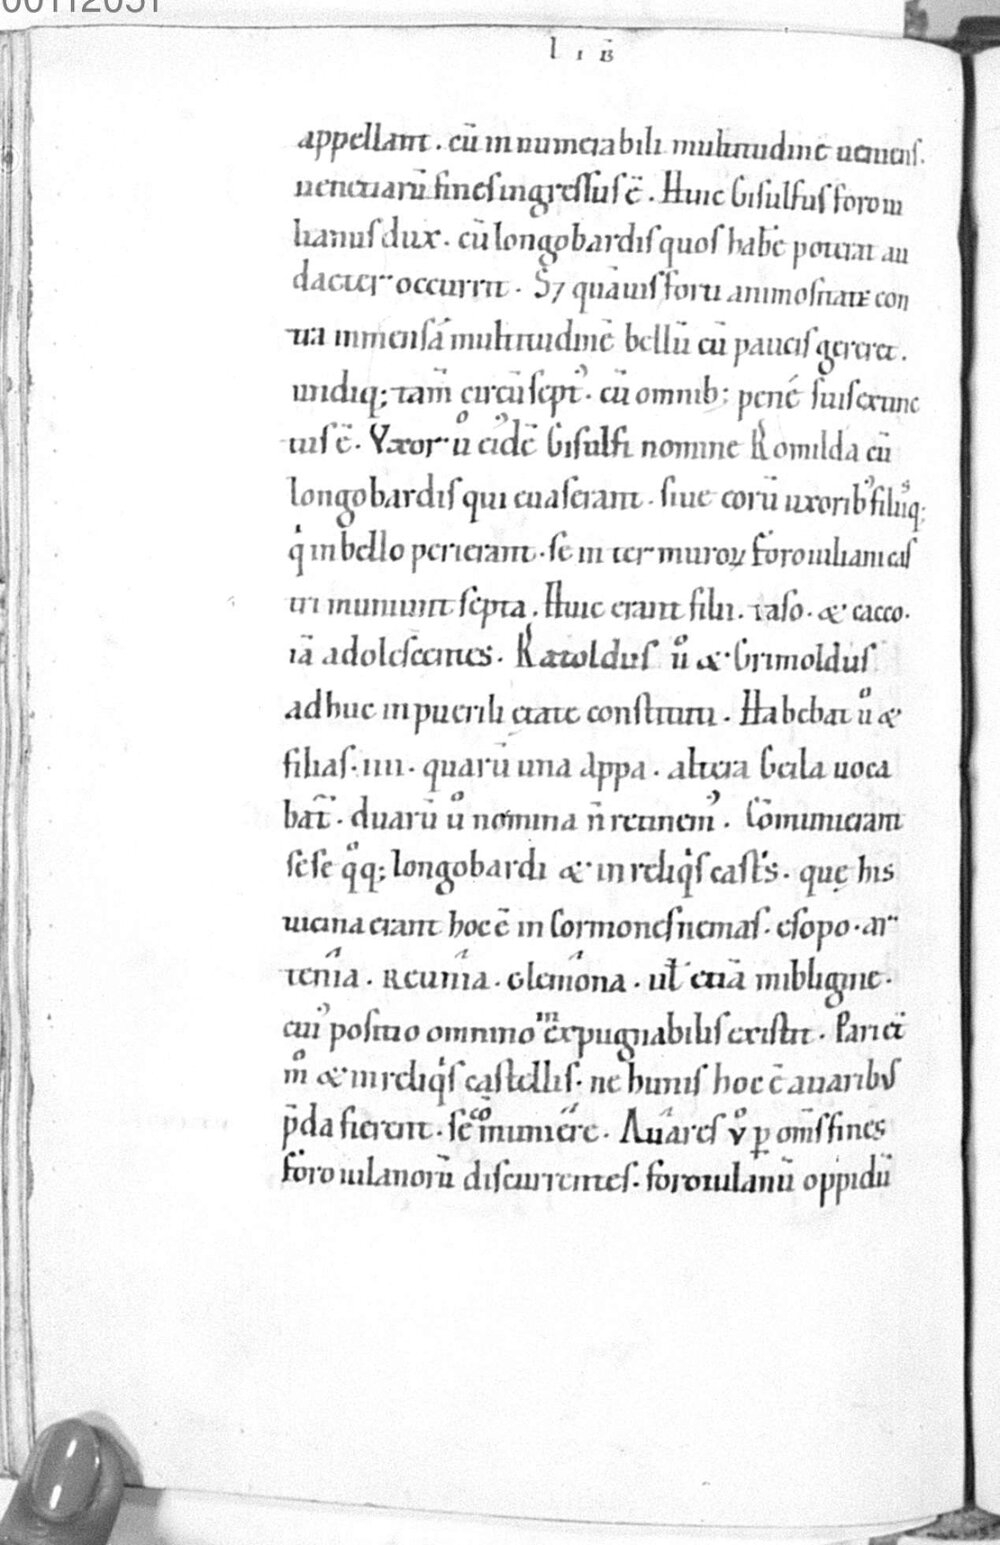 00112051
LIB
appellant. cū innumerabili multitudine ueniens.
uenetiarū fines ingressus ē. Huic Gisulfus foroiu
lianus dux. cū longobardis quos habē poterat au
dacter occurrit. S; quāuis forti animositate con
tra inmensā multitudinē bellū cū paucis gereret.
undiq; tam̄ circūsept᾽. cū omnib; pene suis extinc
tus ē. Vxor ů ei᾽dē Gisulfi nomine Romilda cū
longobardis qui euaserant. siue eorū uxorib᾽ filiisq;
qͥ in bello perierant. se inter muroꝝ foroiuliani cas
tri muniunt septa. Huic erant filii. taso. & cacco.
iā adolescentes. Ratoldus ů & Grimoldus
adhuc in puerili etate constituti. Habebat ů &
filias. iiii. quarū una Appa. altera Geila uoca
bat̄. duarū ů nomina n̄ retinem᾽. Cōmunierant
sese qͦq; longobardi & in reliqͥs castͥs. quę his
uicina erant hoc ē in Cormones nemas. esopo. ar
tenia. Reunia. Glemona. ul̄ etiā in ibligine.
cui᾽ positio omnino inexpugnabilis existit. Pari et
mͦ & in reliqͥs castellis. ne hunis hoc ē auaribus
p̄da fierent. se cōmuniere. Auares ů ꝑ om̄s fines
foroiulanorū discurrentes. foroiulanū oppidū